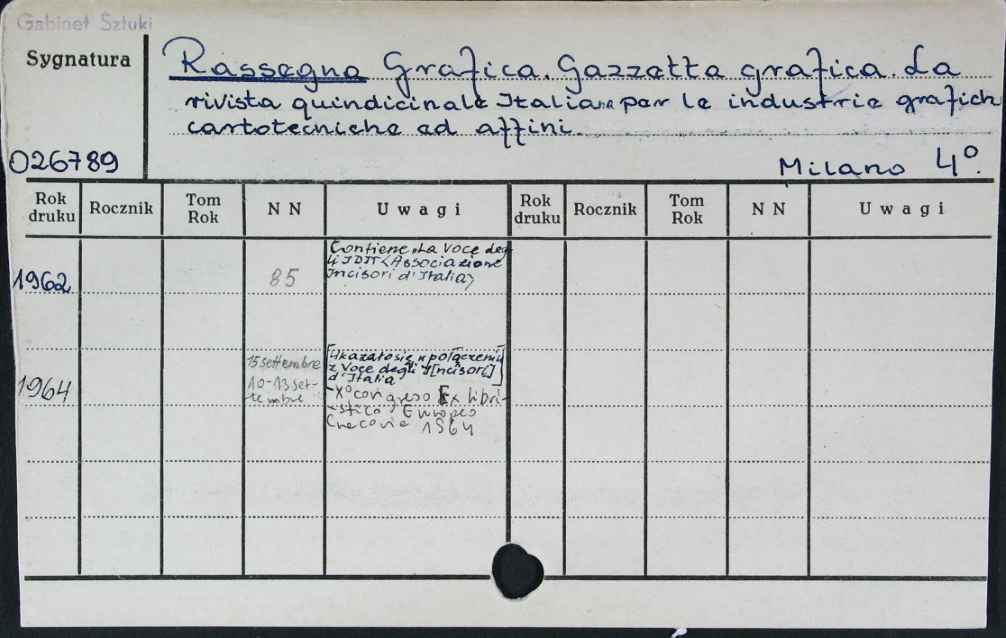 Gabinet Sztuki
Sygnatura
Rassegna Grafica. Gazzetta grafica. La
rivista quindicinale Italiana per le industrie grafich
cartotecniche ed affini.
026789
Milano 4°.
Rok druku Rocznik Tom Rok N N Uwagi Rok druku Rocznik Tom Rok N N Uwagi
1962 85 Contiene „La Voce deg
li IDIT<Associazione
Incisori d'Italia>
1964 15 settembre
10-13 set-
tembre
[Ukazało się w połączeniu
z Voce degli I[ncisori]
d'Italia]
-X° congreso Ex libri-
stico Europeo
Cracovie 1964